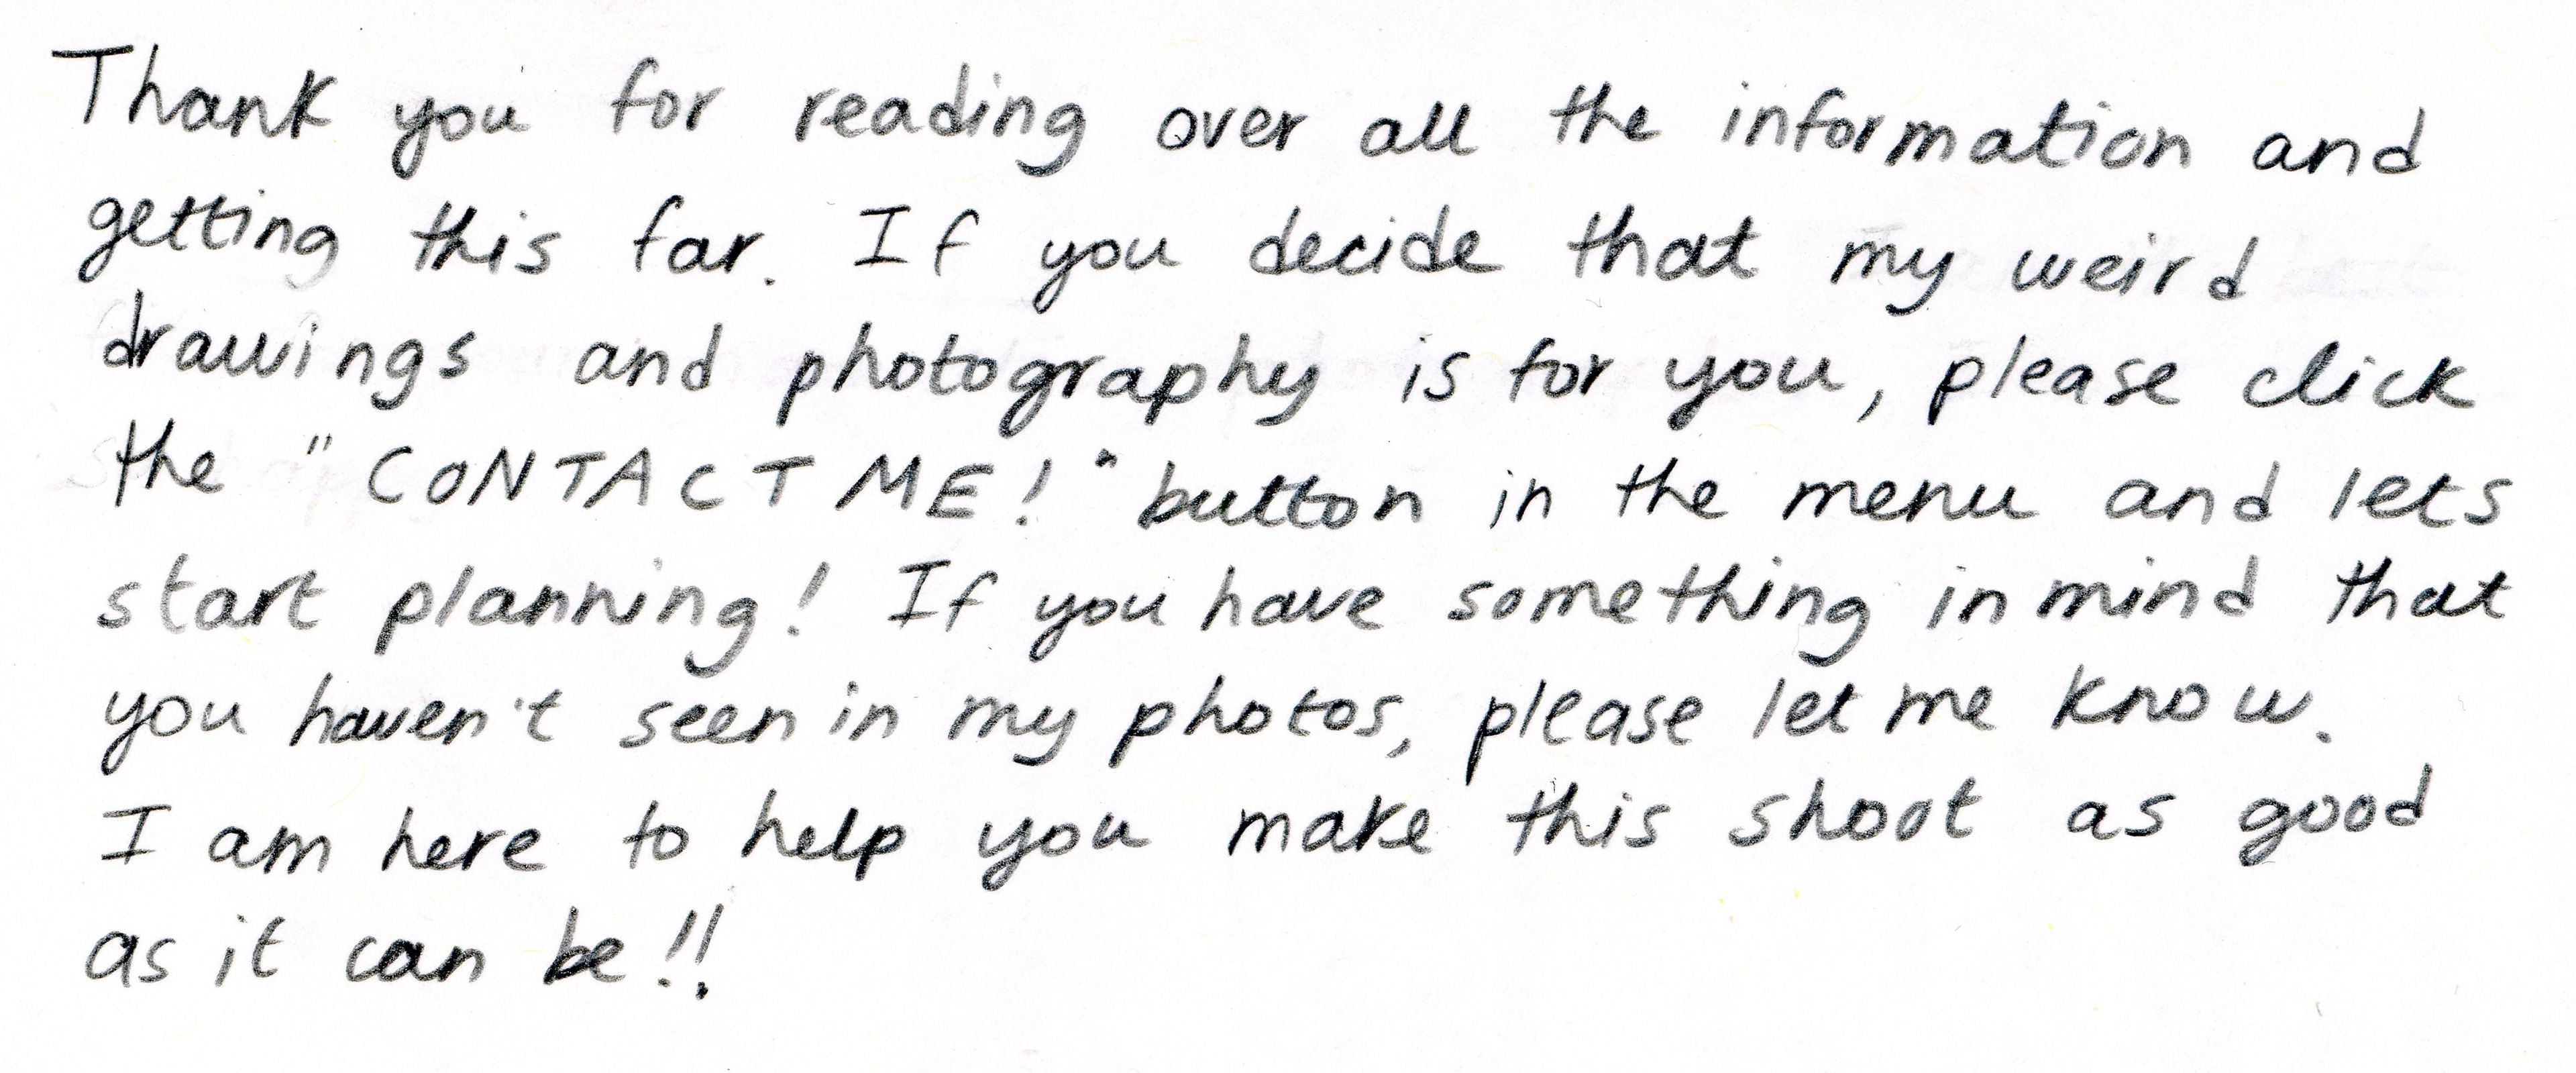 Thank you for reading over all the information and
getting this far. If you decide that my weird
drawings and photography is for you, please click
the "CONTACT ME!" button in the menu and lets
start planning! If you have something in mind that
you haven't seen in my photos, please let me know.
I am here to help you make this shoot as good
as it can be!!